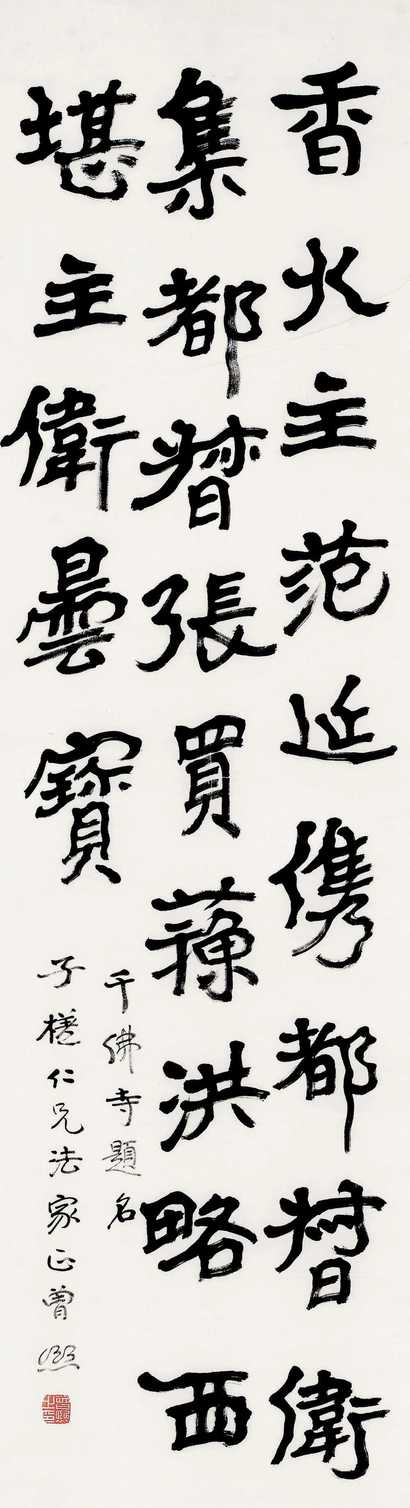 香火主范延儁都督衛
集都督張買蘓洪略西
堪主衛曇寶
千佛寺題名
子楗仁兄法家正曾熙